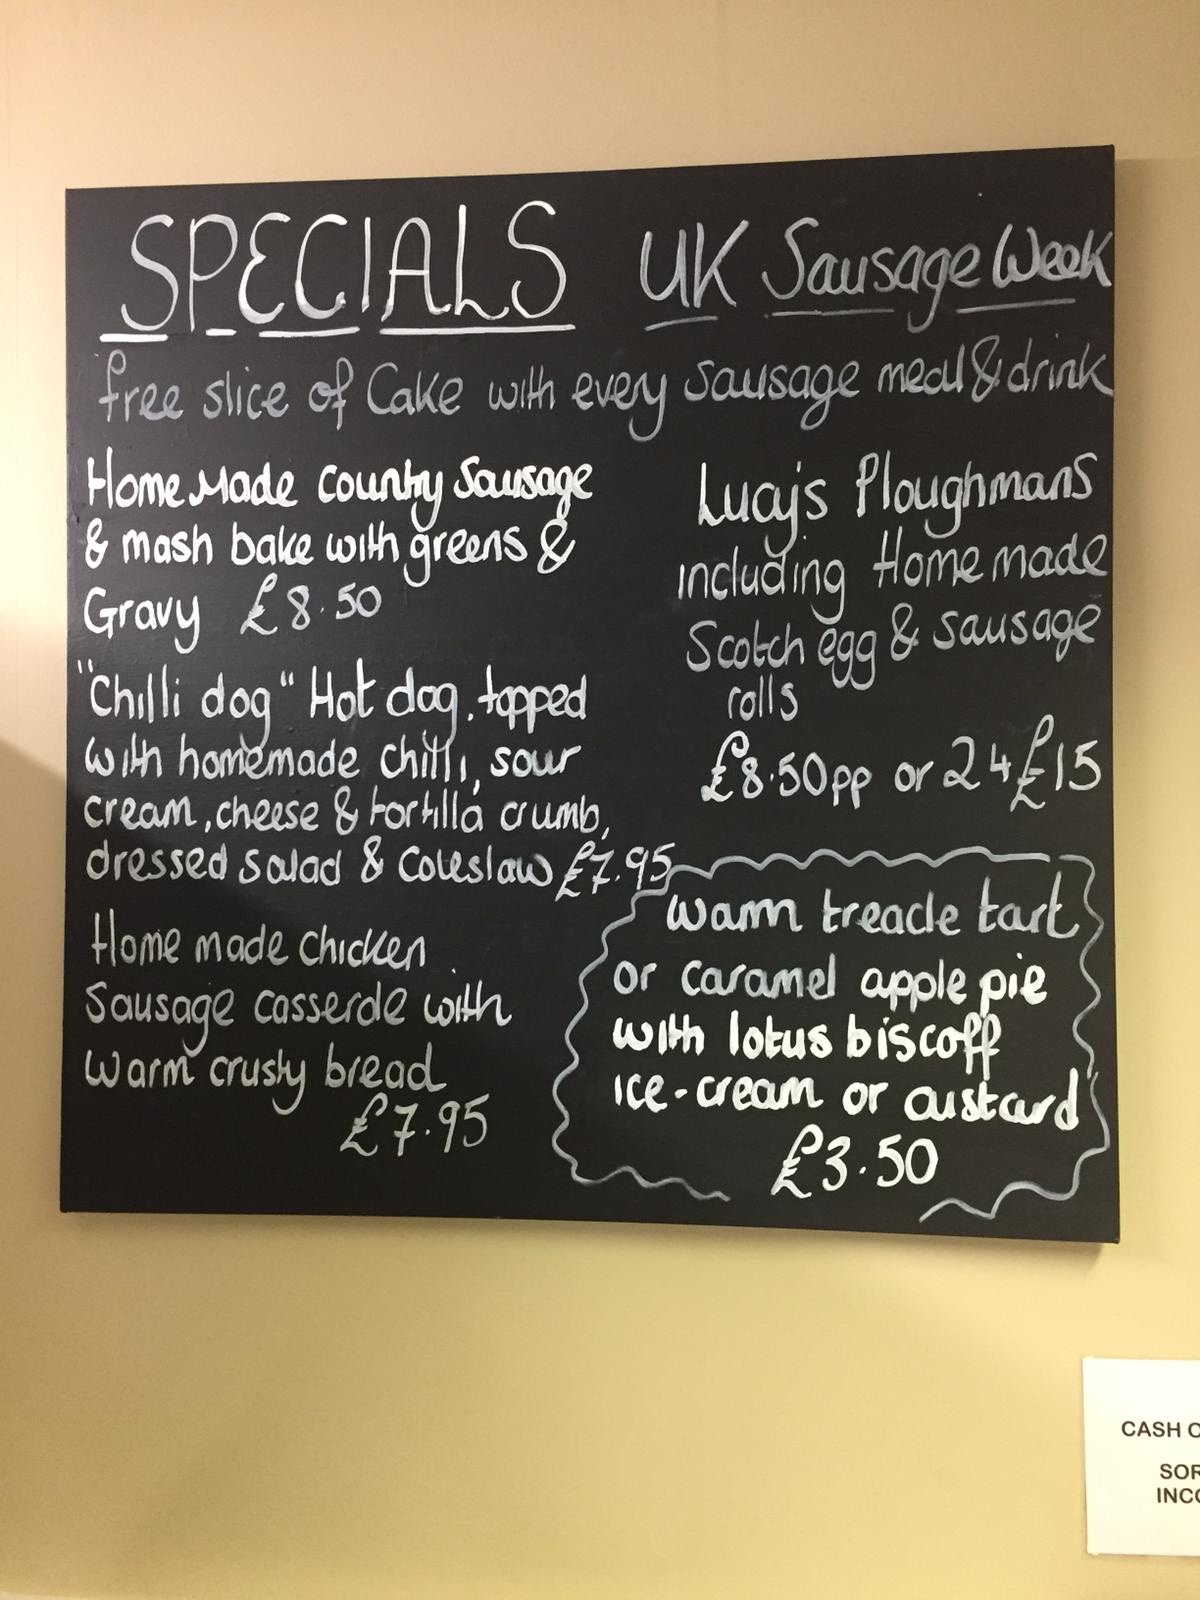 SPECIALS UK Sausage Week
free slice of Cake with every sausage meal & drink
Home Made county Sausage
& mash bake with greens &
Gravy £8.50
"Chilli dog" Hot dog, topped
with homemade chilli, sour
cream, cheese & tortilla crumb,
dressed salad & Coleslaw £7.95
Home made chicken
Sausage casserole with
warm crusty bread
£7.95
Lucy's Ploughmans
including Home made
Scotch egg & sausage
rolls
£8.50pp or 2 4 £15
warm treacle tart
or caramel apple pie
with lotus biscoff
ice-cream or custard
£3.50
CASH O
SOR
INCO